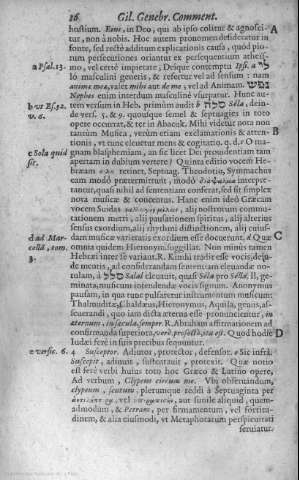 26 Gil. Genebr. Comment.
hostium. Enim, in Deo, qui ab ipso colitur & agnosci-
tur, non à nobis. Hoc autem pronomen desideratur in
fonte, sed rectè additum explicationis causa, quòd pio-
rum persecutiones oriantur ex persequentium atheis-
a Psal. 13. mo, vel certè impietate; Denique contemptu Ipsi. a
masculini generis, & refertur vel ad sensum: nam
anima mea, valet mihi aut de me, vel ad Animam.
Nephes enim interdum masculinè usurpatur. Hunc au-
b ut Ps. 32. tem versum in Heb. primùm audit Sela, dein-
v. 6. de vers. 5. & 9. quoque semel & septuagies in toto
opere occurrit, & ter in Abacuk. Mihi videtur nota non
tantùm Musica, verùm etiam exclamationis & atten-
tionis, ut tunc eleventur mens & cogitatio.
c Sela quid guam blasphemiam, an sic licet Dei præsidentiam tam
sit. apertam in dubium vertere? Quinta editio vocem He-
bræam retinet, Septuag. Theodotio, Symmachus
eam modò prætermittunt, modò interpre-
tantur, quasi nihil ad sententiam conserat, sed sit simplex
nota musicæ & concentus. Hanc enim ideò Græcam
vocem Suidas alij nostrorum commu-
tationem metri, alij pausationem spiritus, alij alterius
sensus exordium, alij rhythmi distinctionem, alij cuius-
dam musicæ varietatis exordium esse docuerunt, d Quæ C
d ad Mar- omnia quædam Hieronymus suggillat. Non minùs tamen
cellã, tom. Hebræi inter se variant. R. Kimhi radit esse vocis, deinde
3. de mentis, ad considerandam sententiam elevandæ no-
tulam, à Salal elevavit, quasi Sela pro Selal. Il, ge-
minata, musicum intendendæ vocis signum. Anonymus
pausam, in qua tunc pulsarentur instrumentum musicum.
Thalmudistæ, Chaldæus, Hieronymus, Aquila, geniti, as-
severandi, quo iam dicta æterna esse pronuncientur, in
æternum, in sæcula, semper. R. Abraham affirmationem ad
confirmanda superiora, verè, profectò, ita est. Quod hodie D
Iudæi ferè in suis precibus sequuntur.
e vers. 6. 4 Susceptor. Adiutor, protector, defensor. e Sic infrà
Suscepit, adiuvit, sustentavit, protexit. Quæ notio
est ferè verbi huius toto hoc Græco & Latino opere,
Ad verbum, Clypeus circum me. Ubi observandum,
clypeum, scutum, plerumque reddi à Septuaginta per
vel aut simile aliquid, quem-
admodum, & Petram, per firmamentum, vel fortitu-
dinem, & alia eiusmodi, ut Metaphorarum perspicuitati
serviatur.